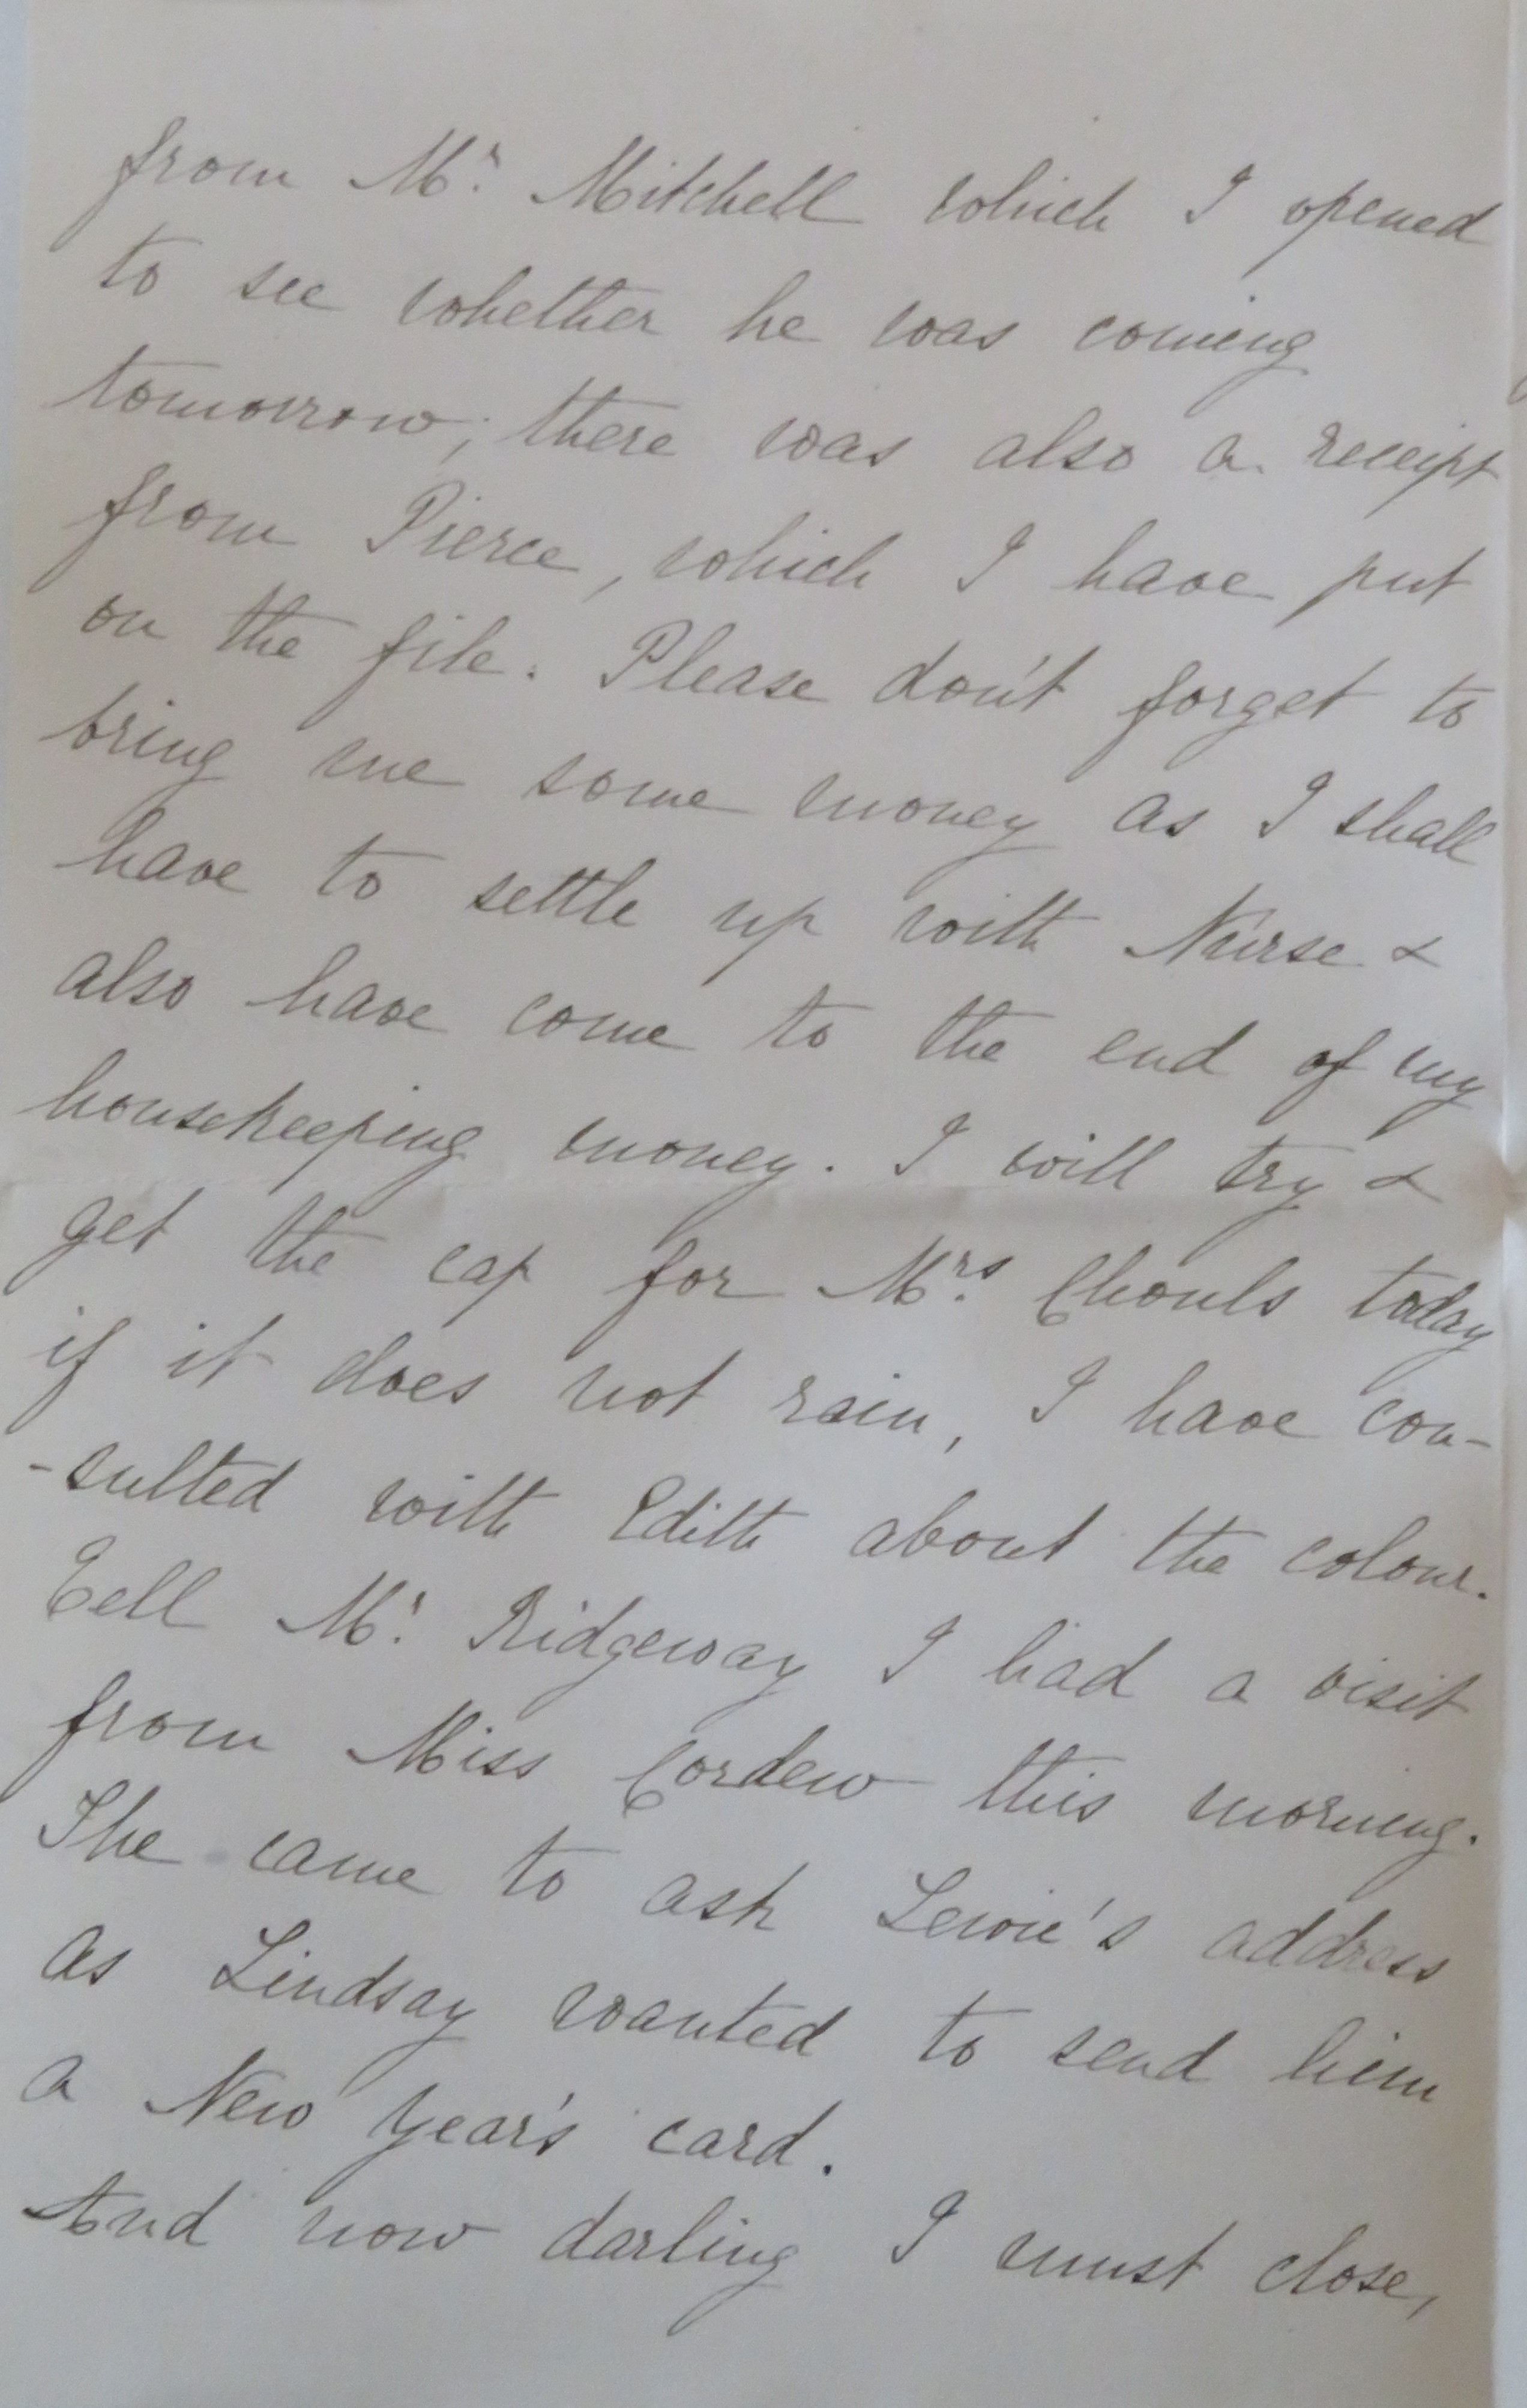 from Mr. Mitchell which I opened
to see whether he was coming
tomorrow; there was also a receipt
from Pierce, which I have put
on the file. Please don't forget to
bring me some money as I shall
have to settle up with Nurse &
also have come to the end of my
housekeeping money. I will try &
get the cap for Mrs. Chouls today
if it does not rain, I have con-
-sulted with Edith about the colour.
Tell Mr. Ridgeway I had a visit
from Miss Cordew this morning.
She came to ask Lewie's address
as Lindsay wanted to send him
a New Year's card.
And now darling I must close,